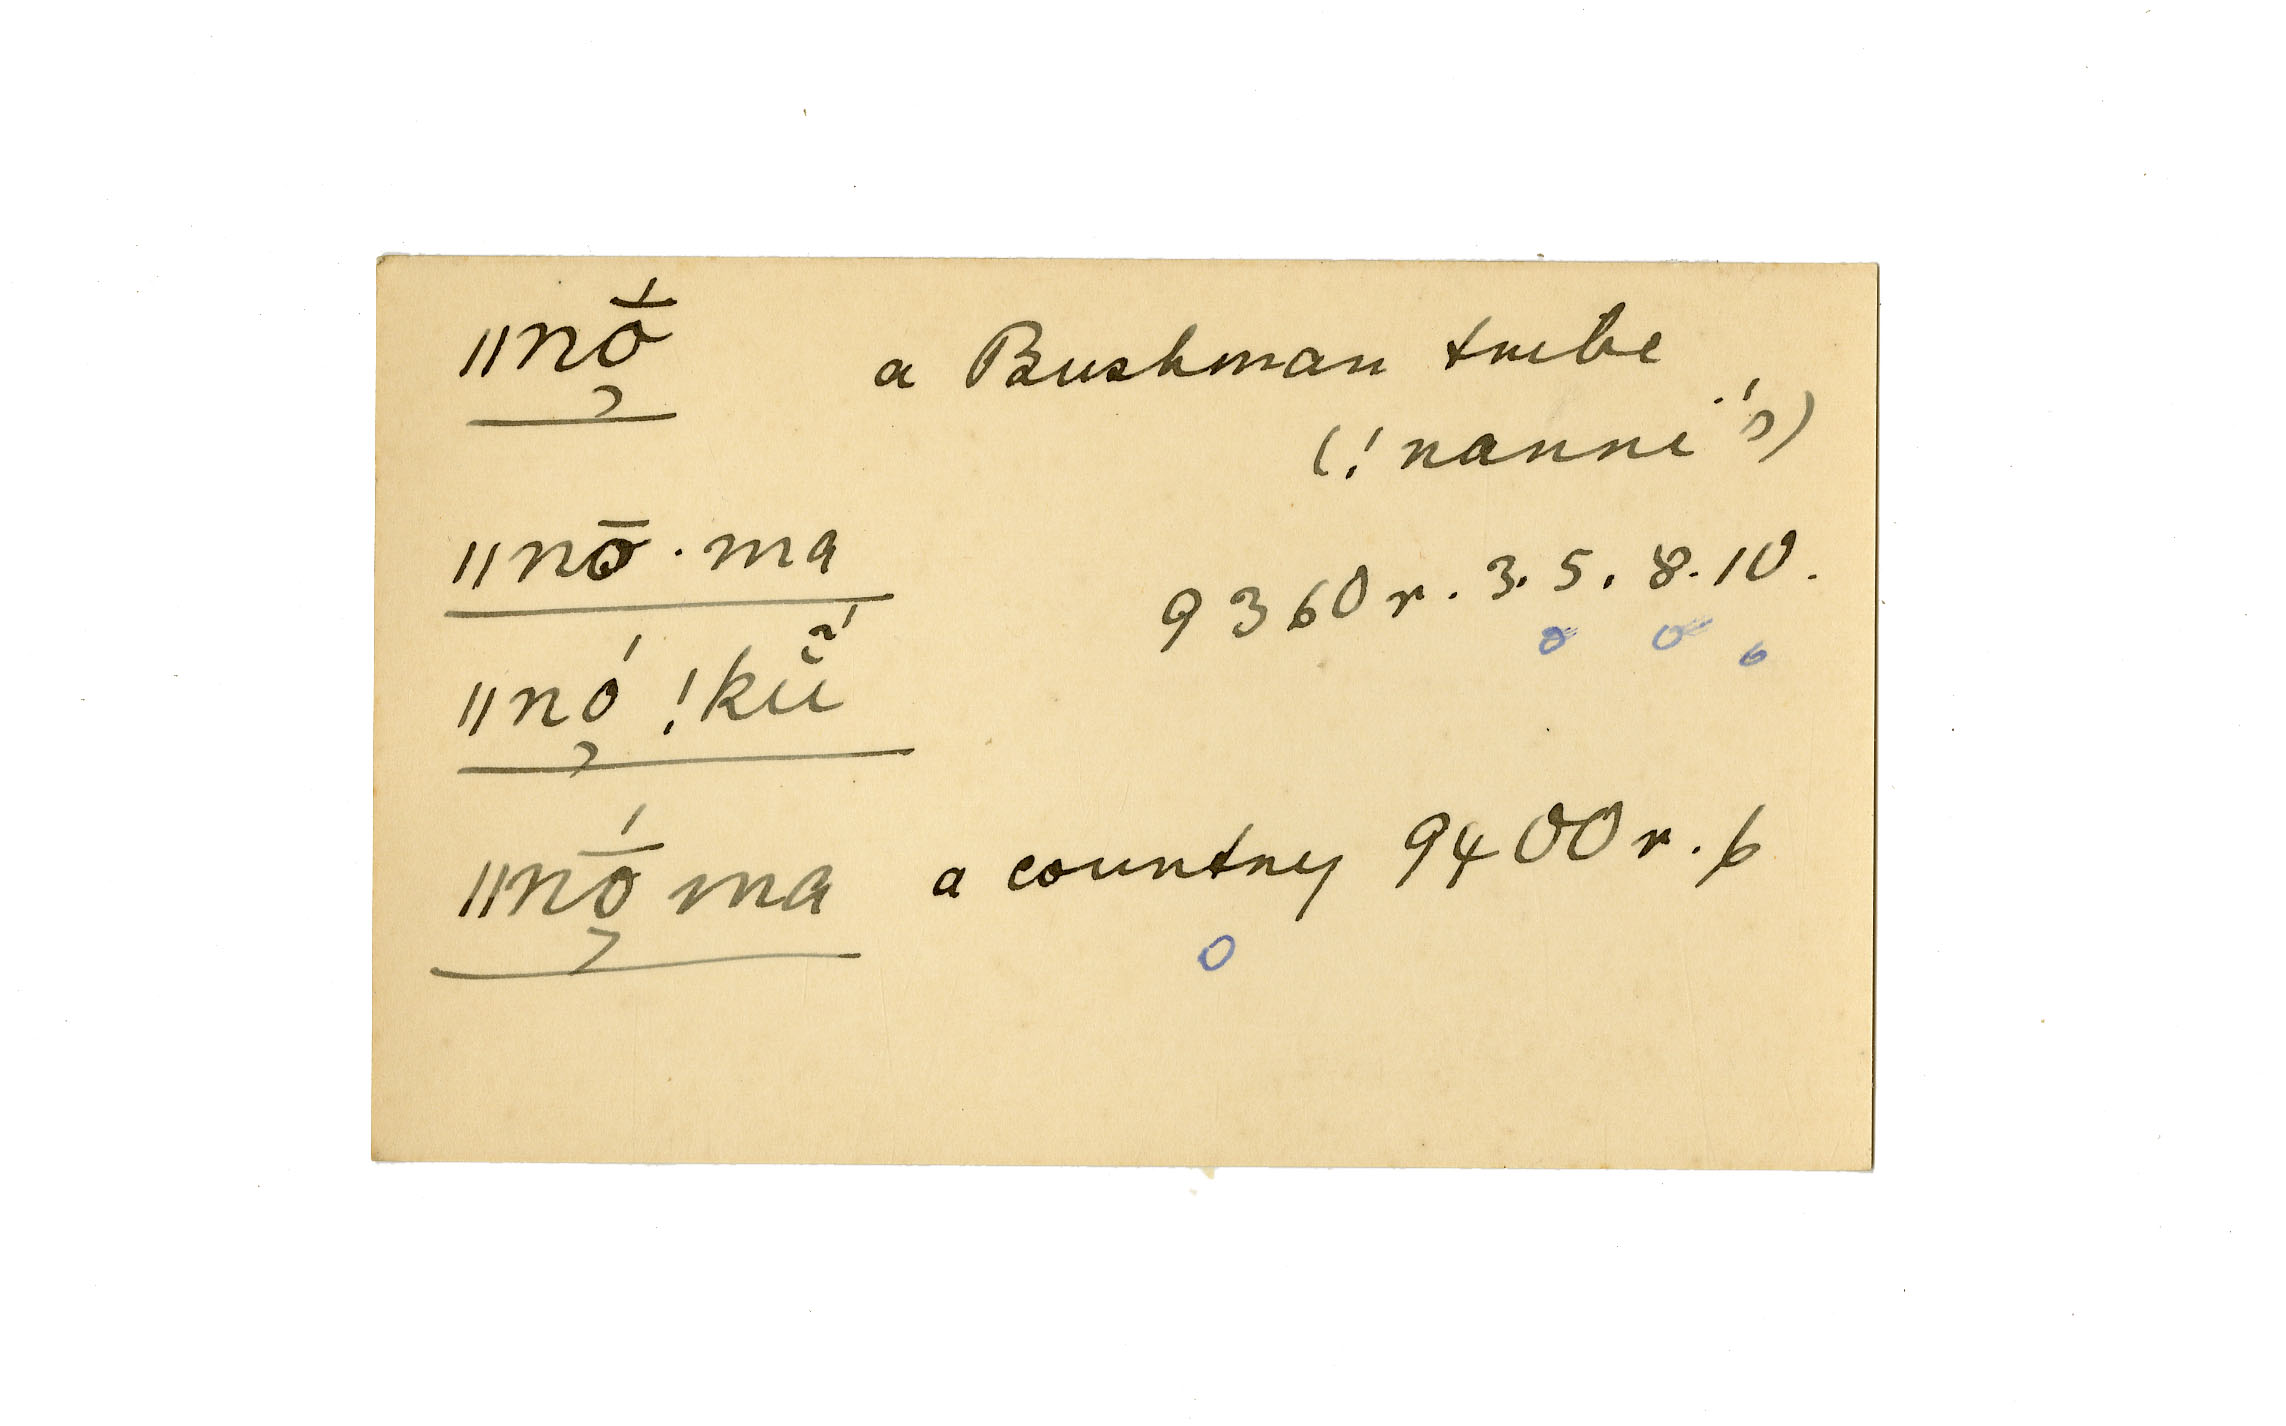 ǁnṓ̦ a Bushman tribe
(!nanni's)
ǁnō·ma 9360r. 3. 5. 8. 10.
ǁnó̦ !kü̃́
ǁnṓ̦ ma a country 9400r. 6